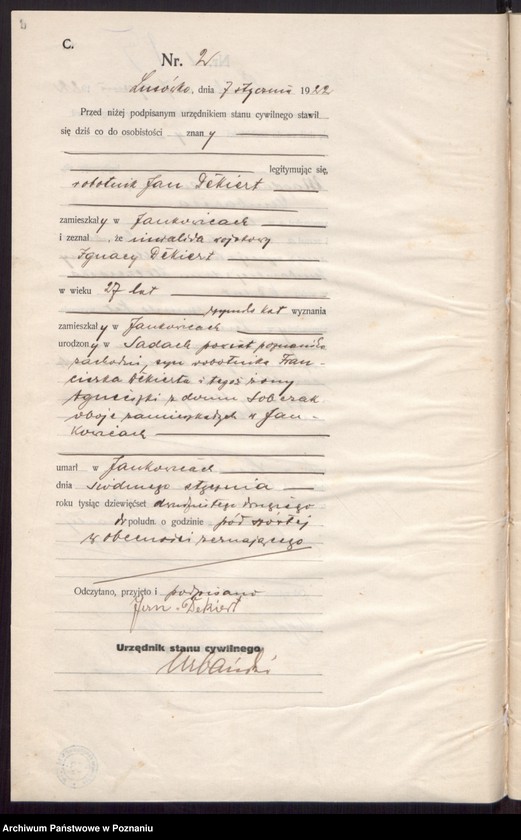 C.
Nr. 2
Lusówko, dnia 7 stycznia 1922
Przed niżej podpisanym urzędnikiem stanu cywilnego stawił
się dziś co do osobistości znany
legitymując się,
robotnik Jan Dekiert
zamieszkały w Jankowicach
i zeznał, że inwalida wojskowy
Ignacy Dekiert
w wieku 27 lat
rzymsko kat wyznania
zamieszkały w Jankowicach
urodzony w Sadach powiat poznański
zachodni, syn robotnika Fran-
ciszka Dekierta i tegoż żony
Agnieszki z domu Sobczak
oboje zamieszkałych w Jan-
kowicach
umarł w Jankowicach
dnia siódmego stycznia
roku tysiąc dziewięćset dwudziestego drugiego
połudn. o godzinie pół
w obecności zeznającego
Odczytano, przyjęto i podpisano
Jan Dekiert
Urzędnik stanu cywilnego
Urbański
Archiwum Państwowe w Poznaniu